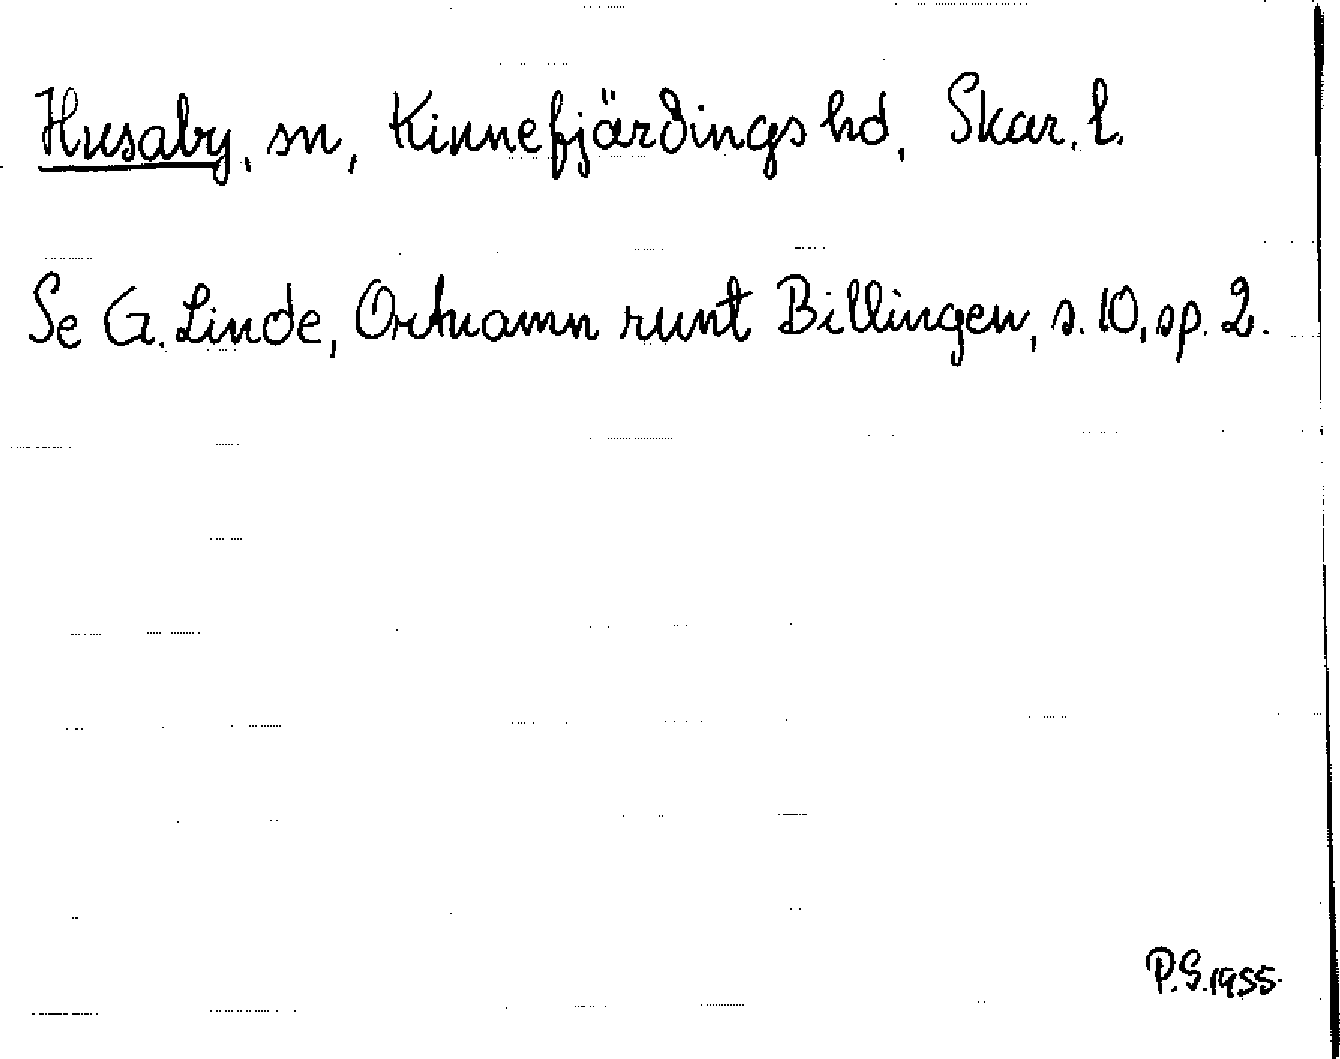 Husaby, sn, Kinnefjärdings hd, Skar. l.
Se G. Linde, Ortnamn runt Billingen, s. 10, sp. 2.
P.S. 1955.